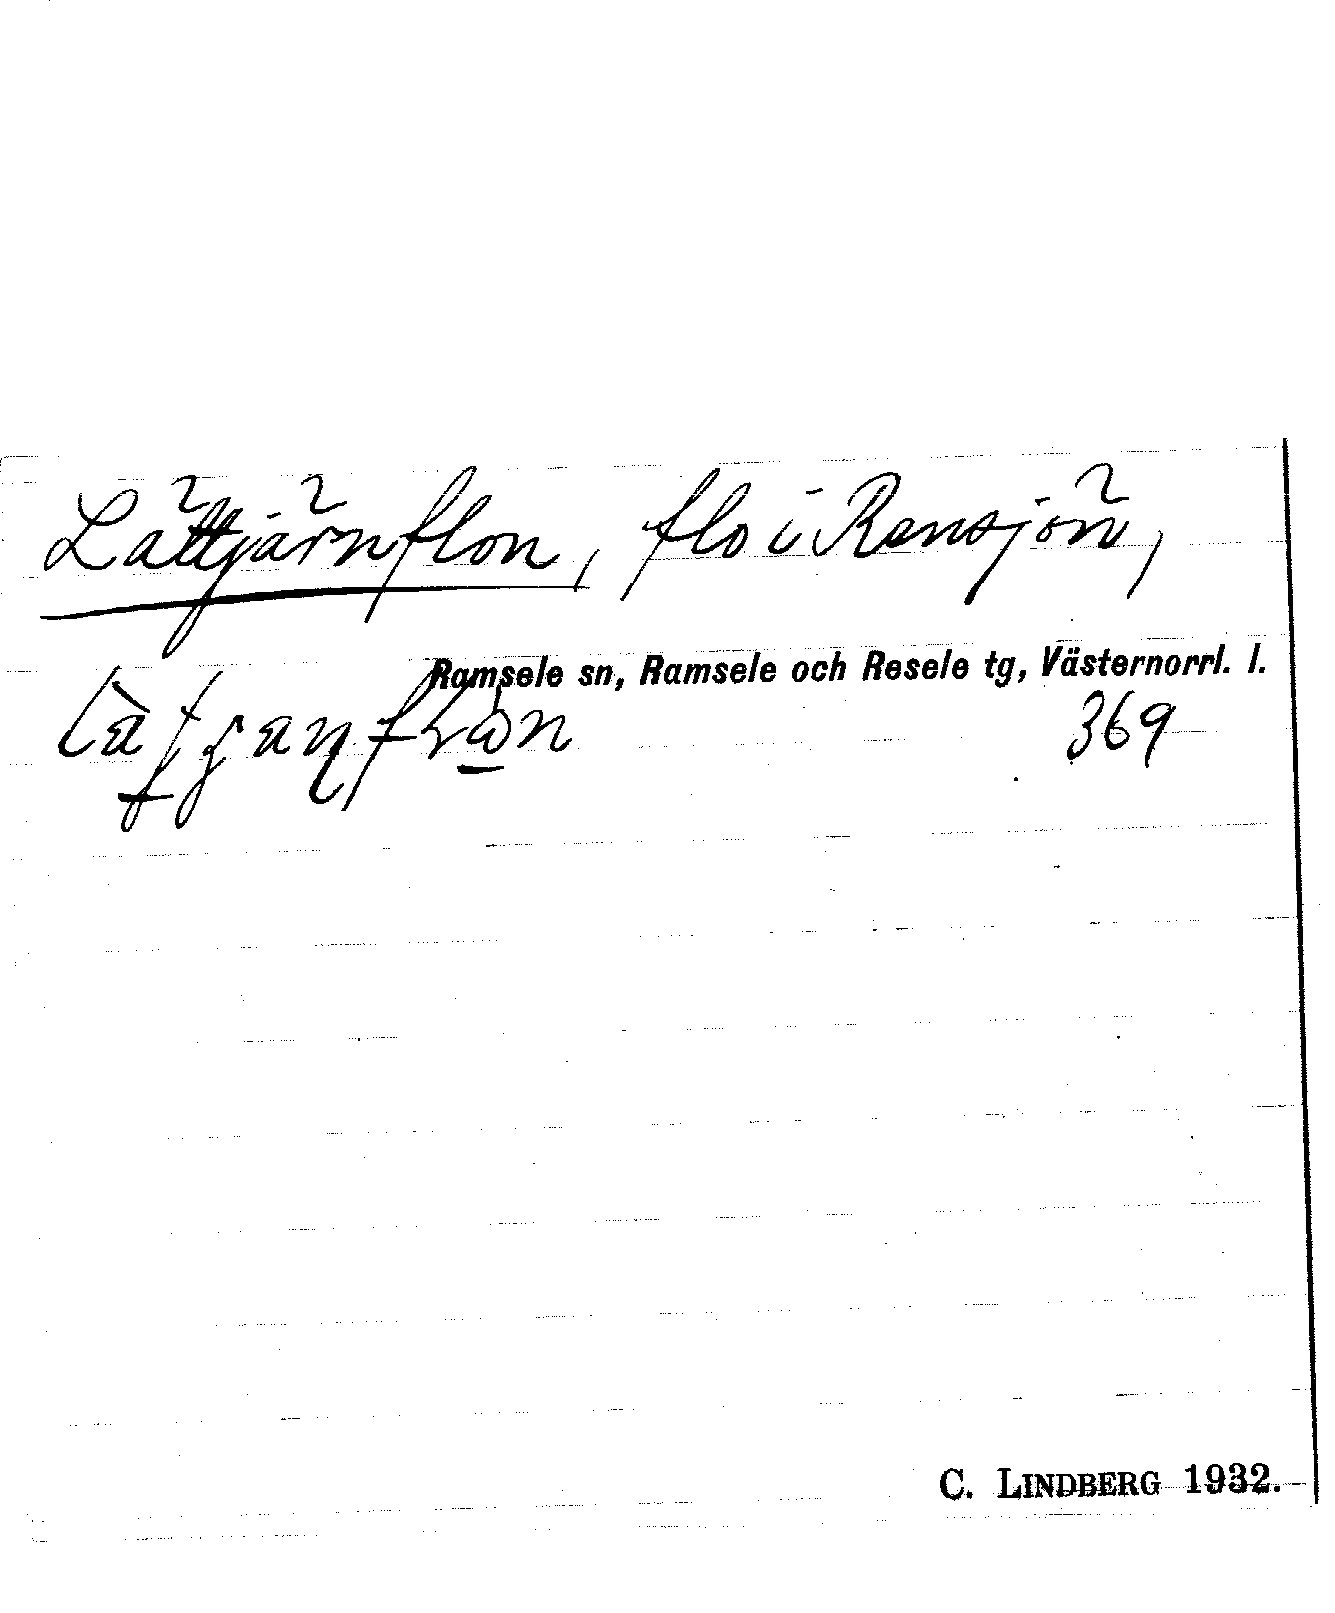 Lättjärnflon, flo i Rensjön,
Ramsele sn, Ramsele och Resele tg, Västernorrl. l.
369
C. LINDBERG 1932.